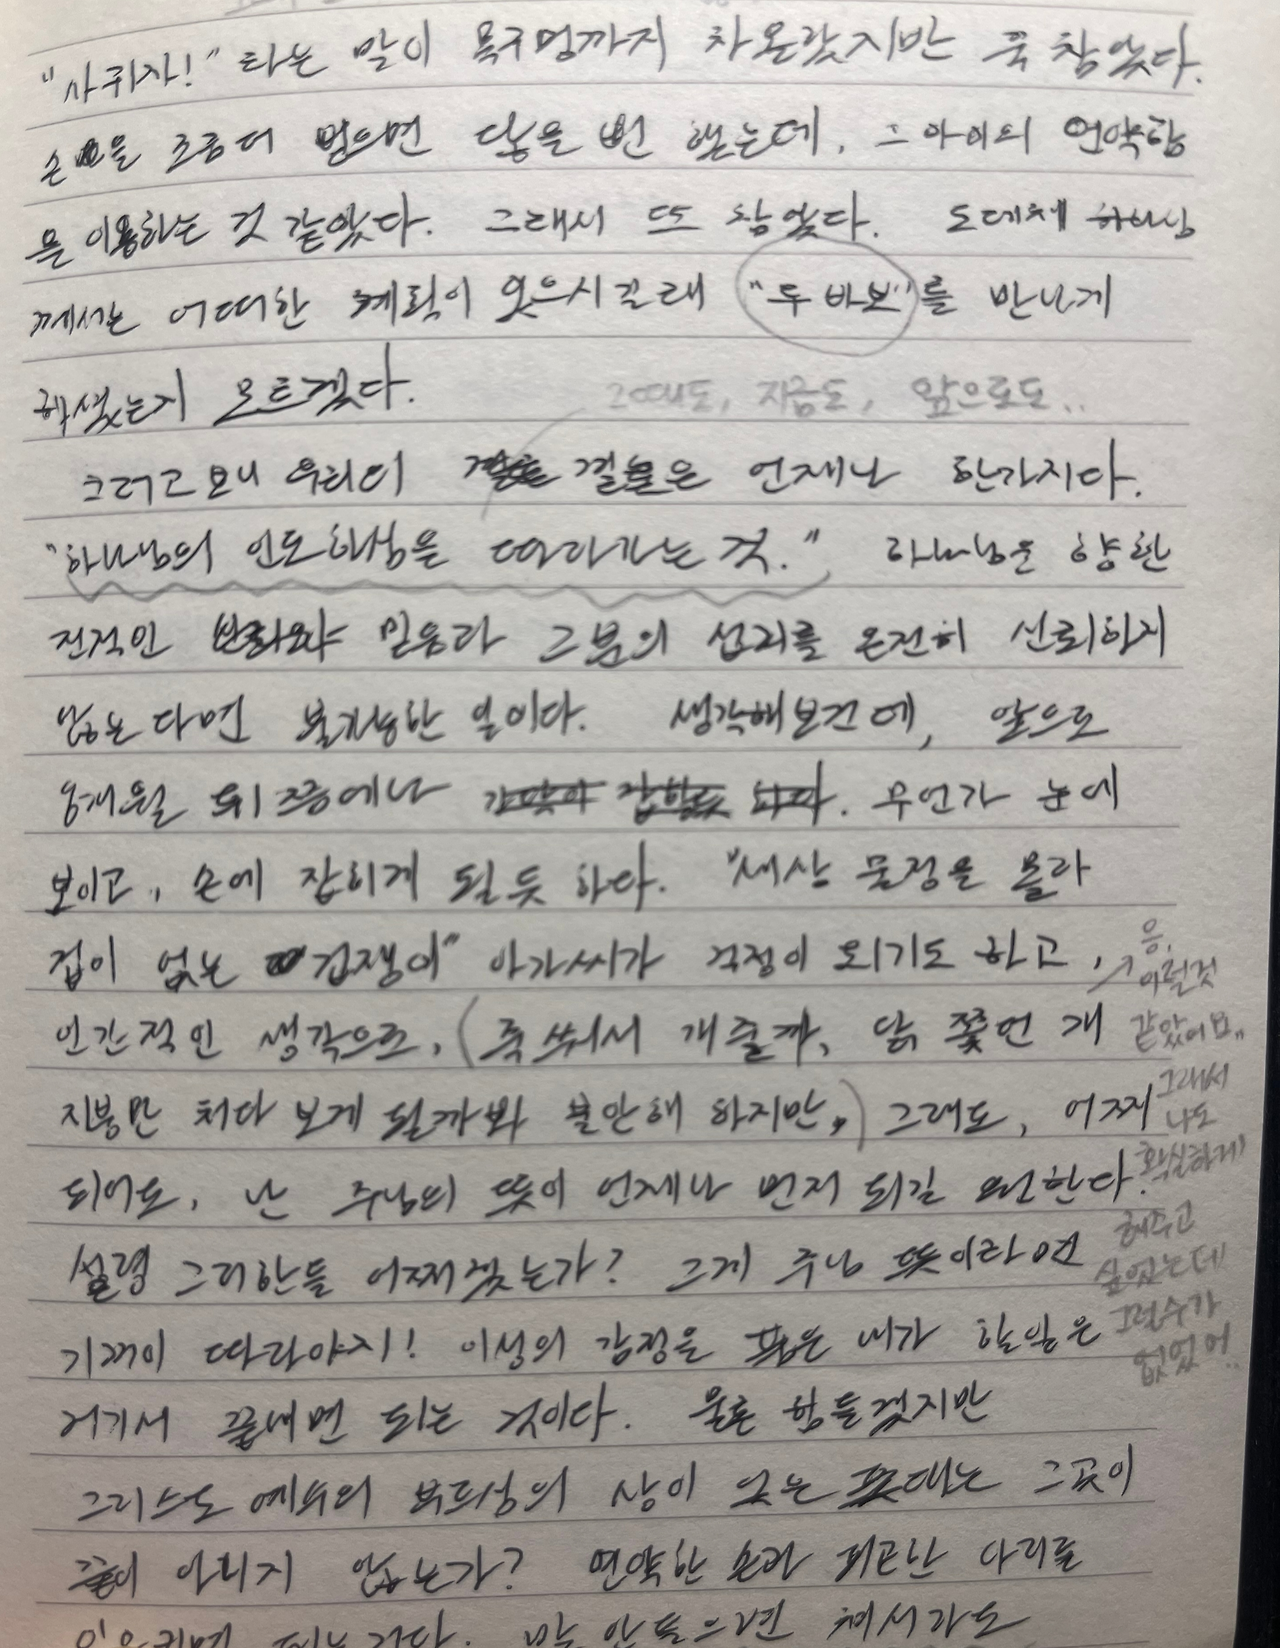 "사귀자!" 라는 말이 목구멍까지 차올랐지만 꾹 참았다.
손을 조금 더 뻗으면 닿을 뻔 했는데, 그 아이의 연약함
을 이용하는 것 같았다. 그래서 또 참았다. 도대체 하나님
께서는 어떠한 계획이 있으시길래 "두 바보"를 만나게
하셨는지 모르겠다.
그때도, 지금도, 앞으로도..
그러고보니 우리의 길은 언제나 한가지다.
"하나님의 인도하심을 따라가는 것." 하나님을 향한
전적인 믿음과 그분의 섭리를 온전히 신뢰하지
않는다면 불가능한 일이다. 생각해보건데, 앞으로
8개월 뒤 쯤에나 무언가 눈에
보이고, 손에 잡히게 될 듯 하다. "세상 물정을 몰라
겁이 없는 겁쟁이" 아가씨가 걱정이 되기도 하고,
인간적인 생각으로, (죽 쒀서 개 줄까, 닭 쫓던 개
지붕만 처다 보게 될까봐 불안해 하지만,) 그래도, 어찌
되어도, 난 주님의 뜻이 언제나 먼저 되길 원한다.
설령 그리한들 어찌겠는가? 그게 주님 뜻이라면
기꺼이 따라야지! 이성의 감정을 품은 내가 할 일은
거기서 끝내면 되는 것이다. 물론 힘들겠지만
그리스도 예수의 부르심의 상이 있는 푯대는 그곳이
끝이 아니지 않는가? 연약한 손과 피곤한 다리를
응,
이런것
같았어요..
그래서
나도
확실하게
해주고
싶었는데
그럴수가
없었어..